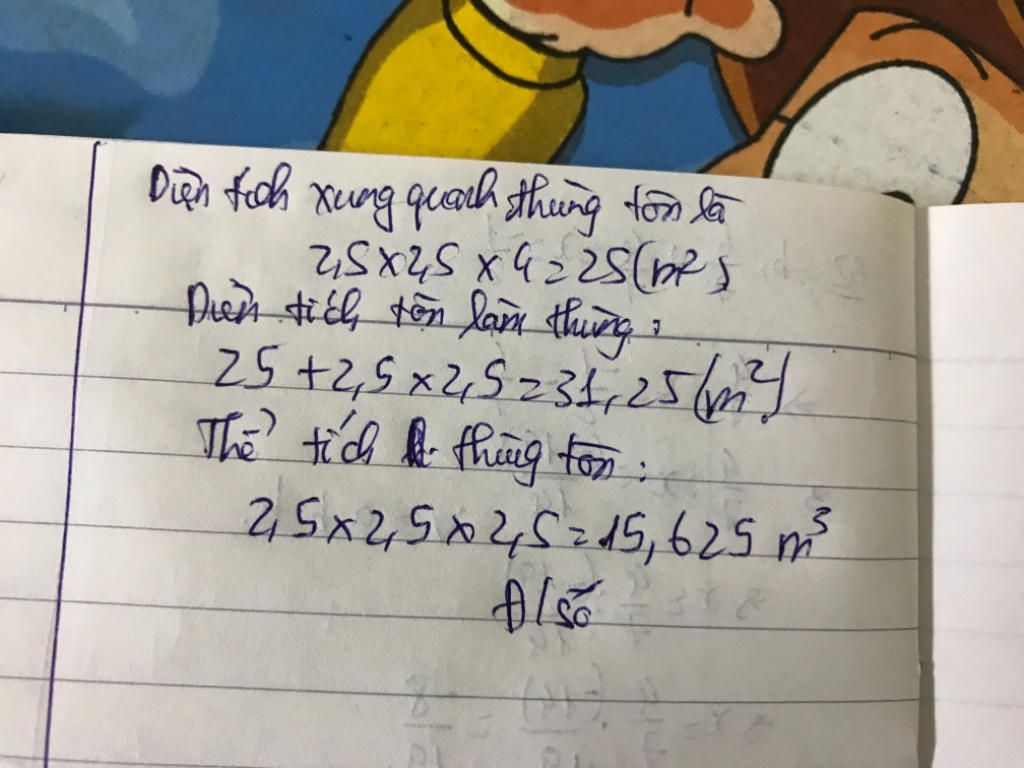 Diện tích xung quanh thùng tôn là
2,5 x 2,5 x 4 = 25 (m²)
Diện tích tôn làm thùng:
25 + 2,5 x 2,5 = 31,25 (m²)
Thể tích thùng tôn:
2,5 x 2,5 x 2,5 = 15,625 m³
Đ/số